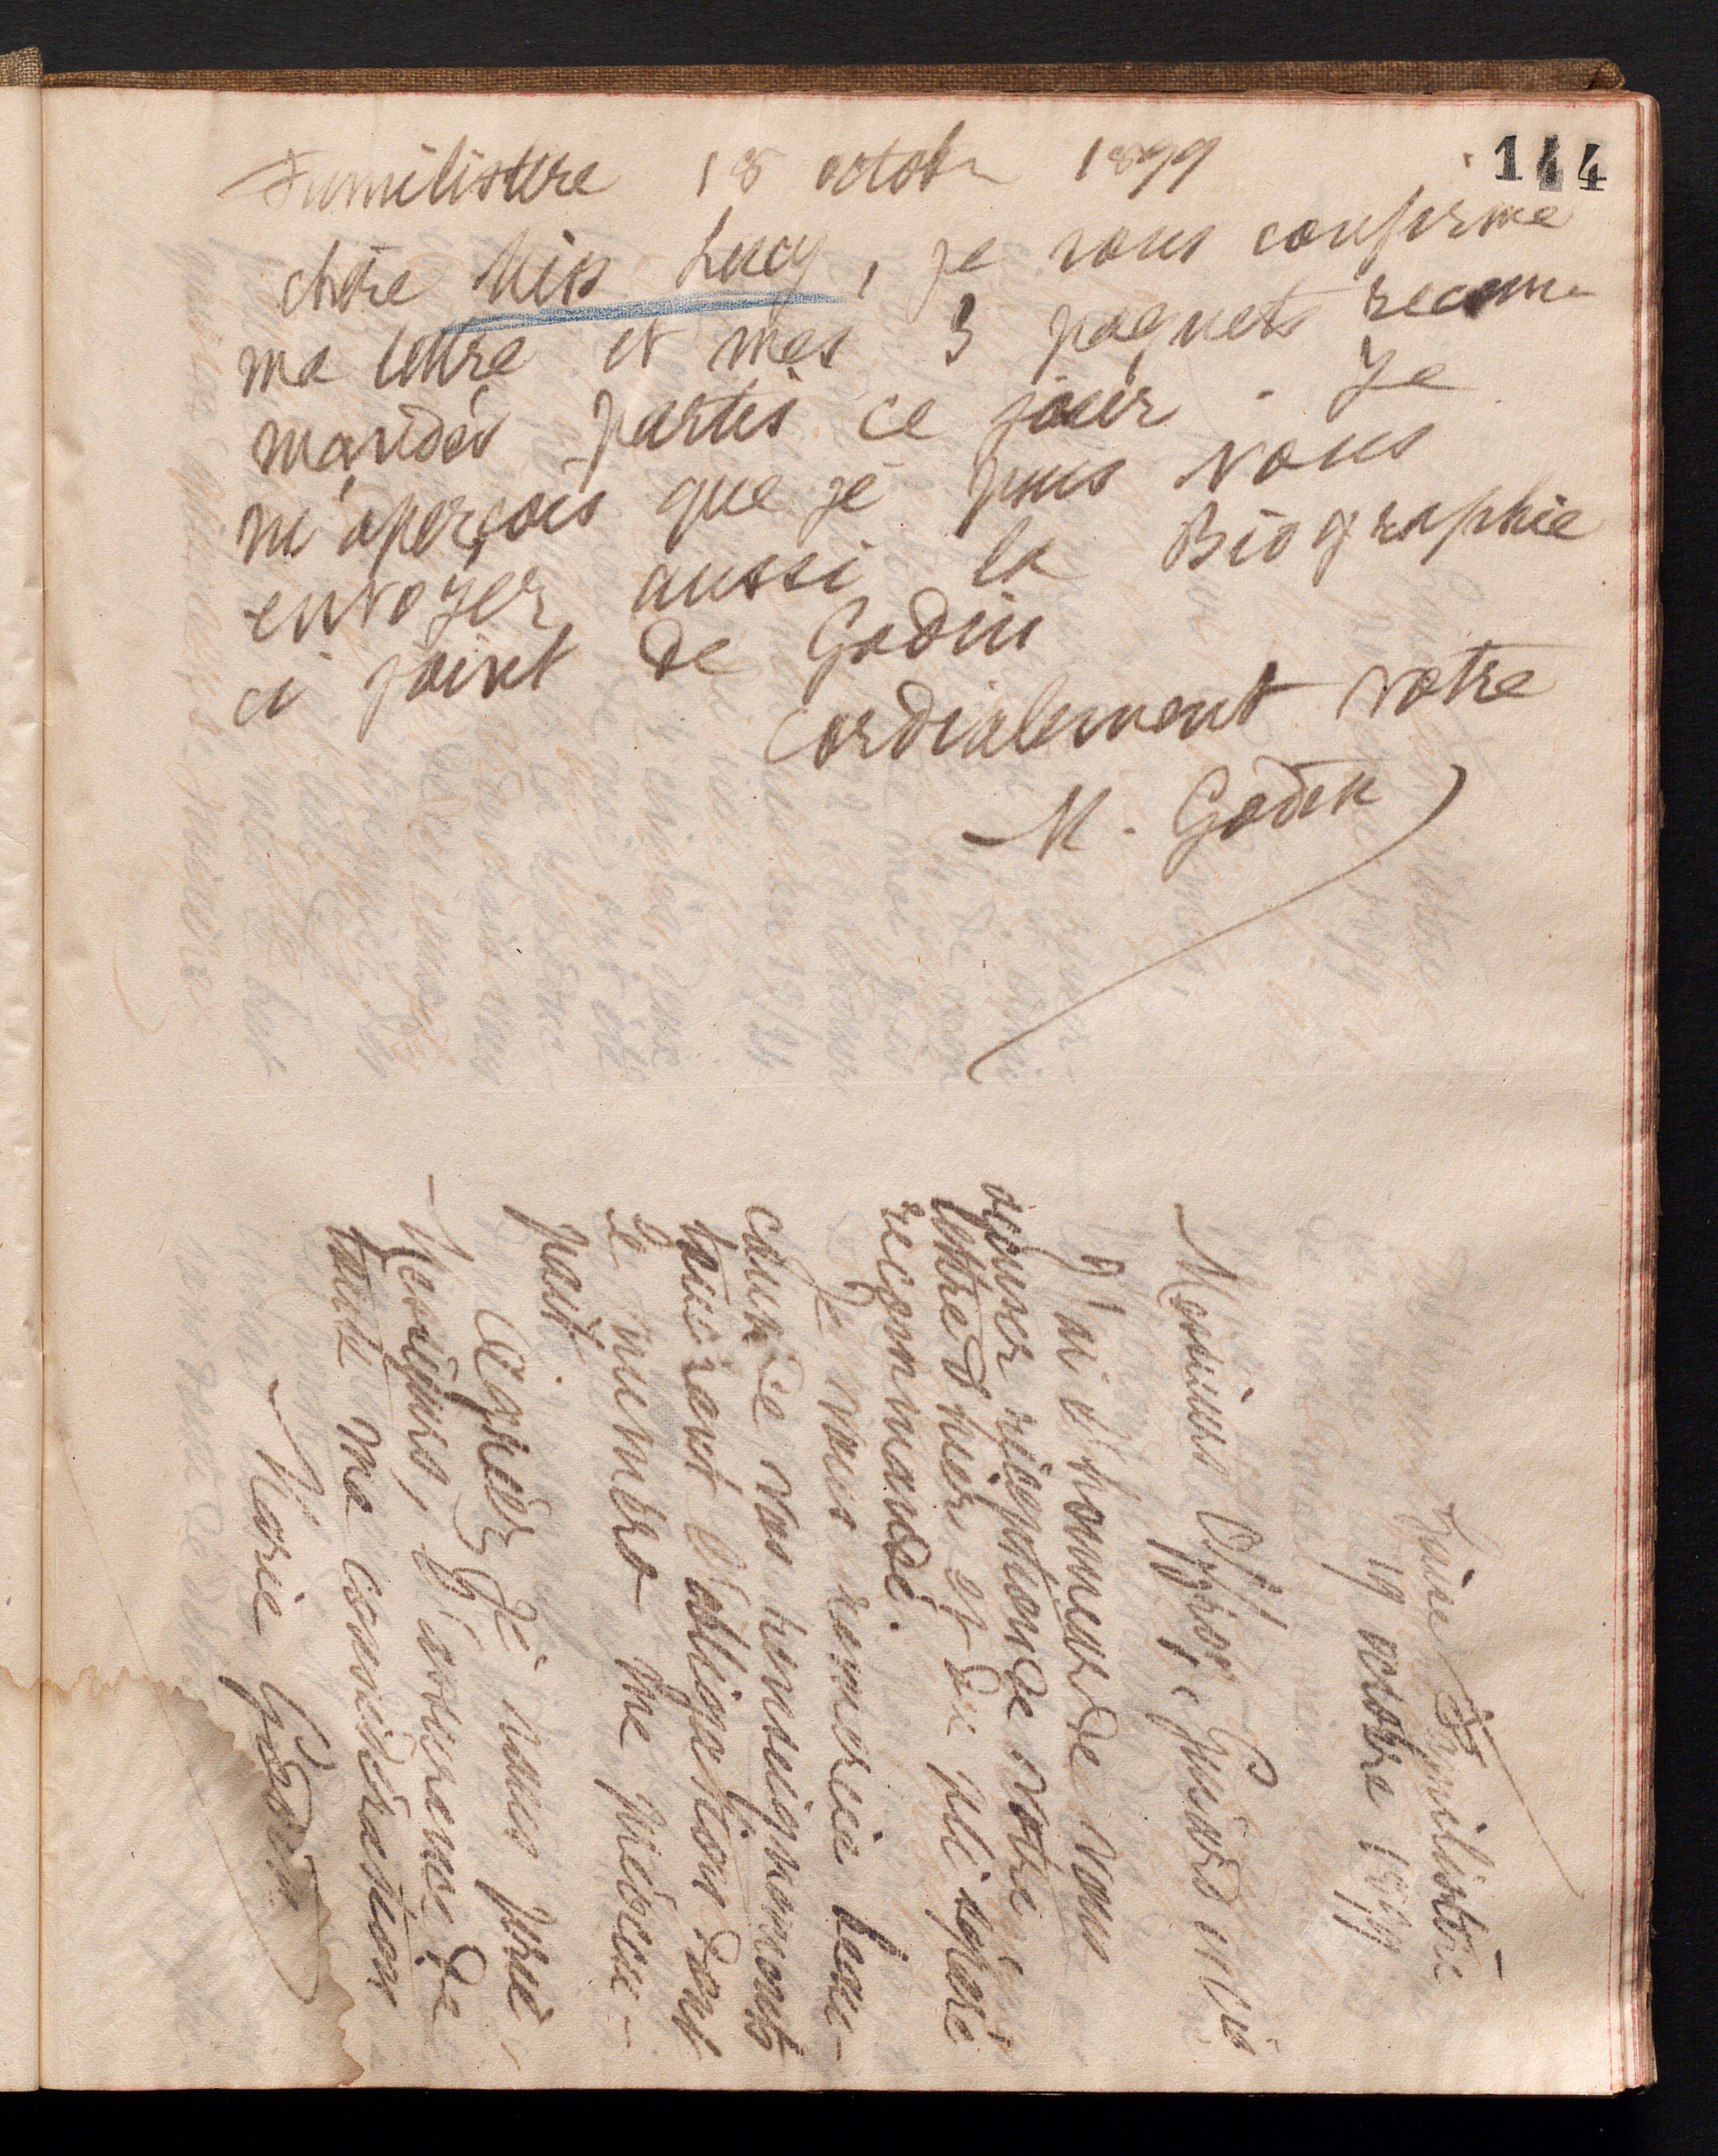 144
Familistère 18 octobre 1899
chère Miss Lucy, je vous confirme
ma lettre et mes 3 paquets recom-
mandés partis ce jour. Je
m'aperçois que je puis vous
envoyer aussi la Biographie
ci joint de Godin
Cordialement votre
M. Godin
Guise Familistère
19 octobre 1899
Messieurs Offroy, Guiard et Cie
J'ai l'honneur de vous
accuser réception de votre
lettre d'hier et du pli séparé
recommandé.
Je vous remercie beau-
coup de vos renseignements
touchant l'obligation dont
le numéro me préoccu-
pait.
Agréez je vous prie,
Messieurs, l'assurance de
toute ma considération
Marie Godin